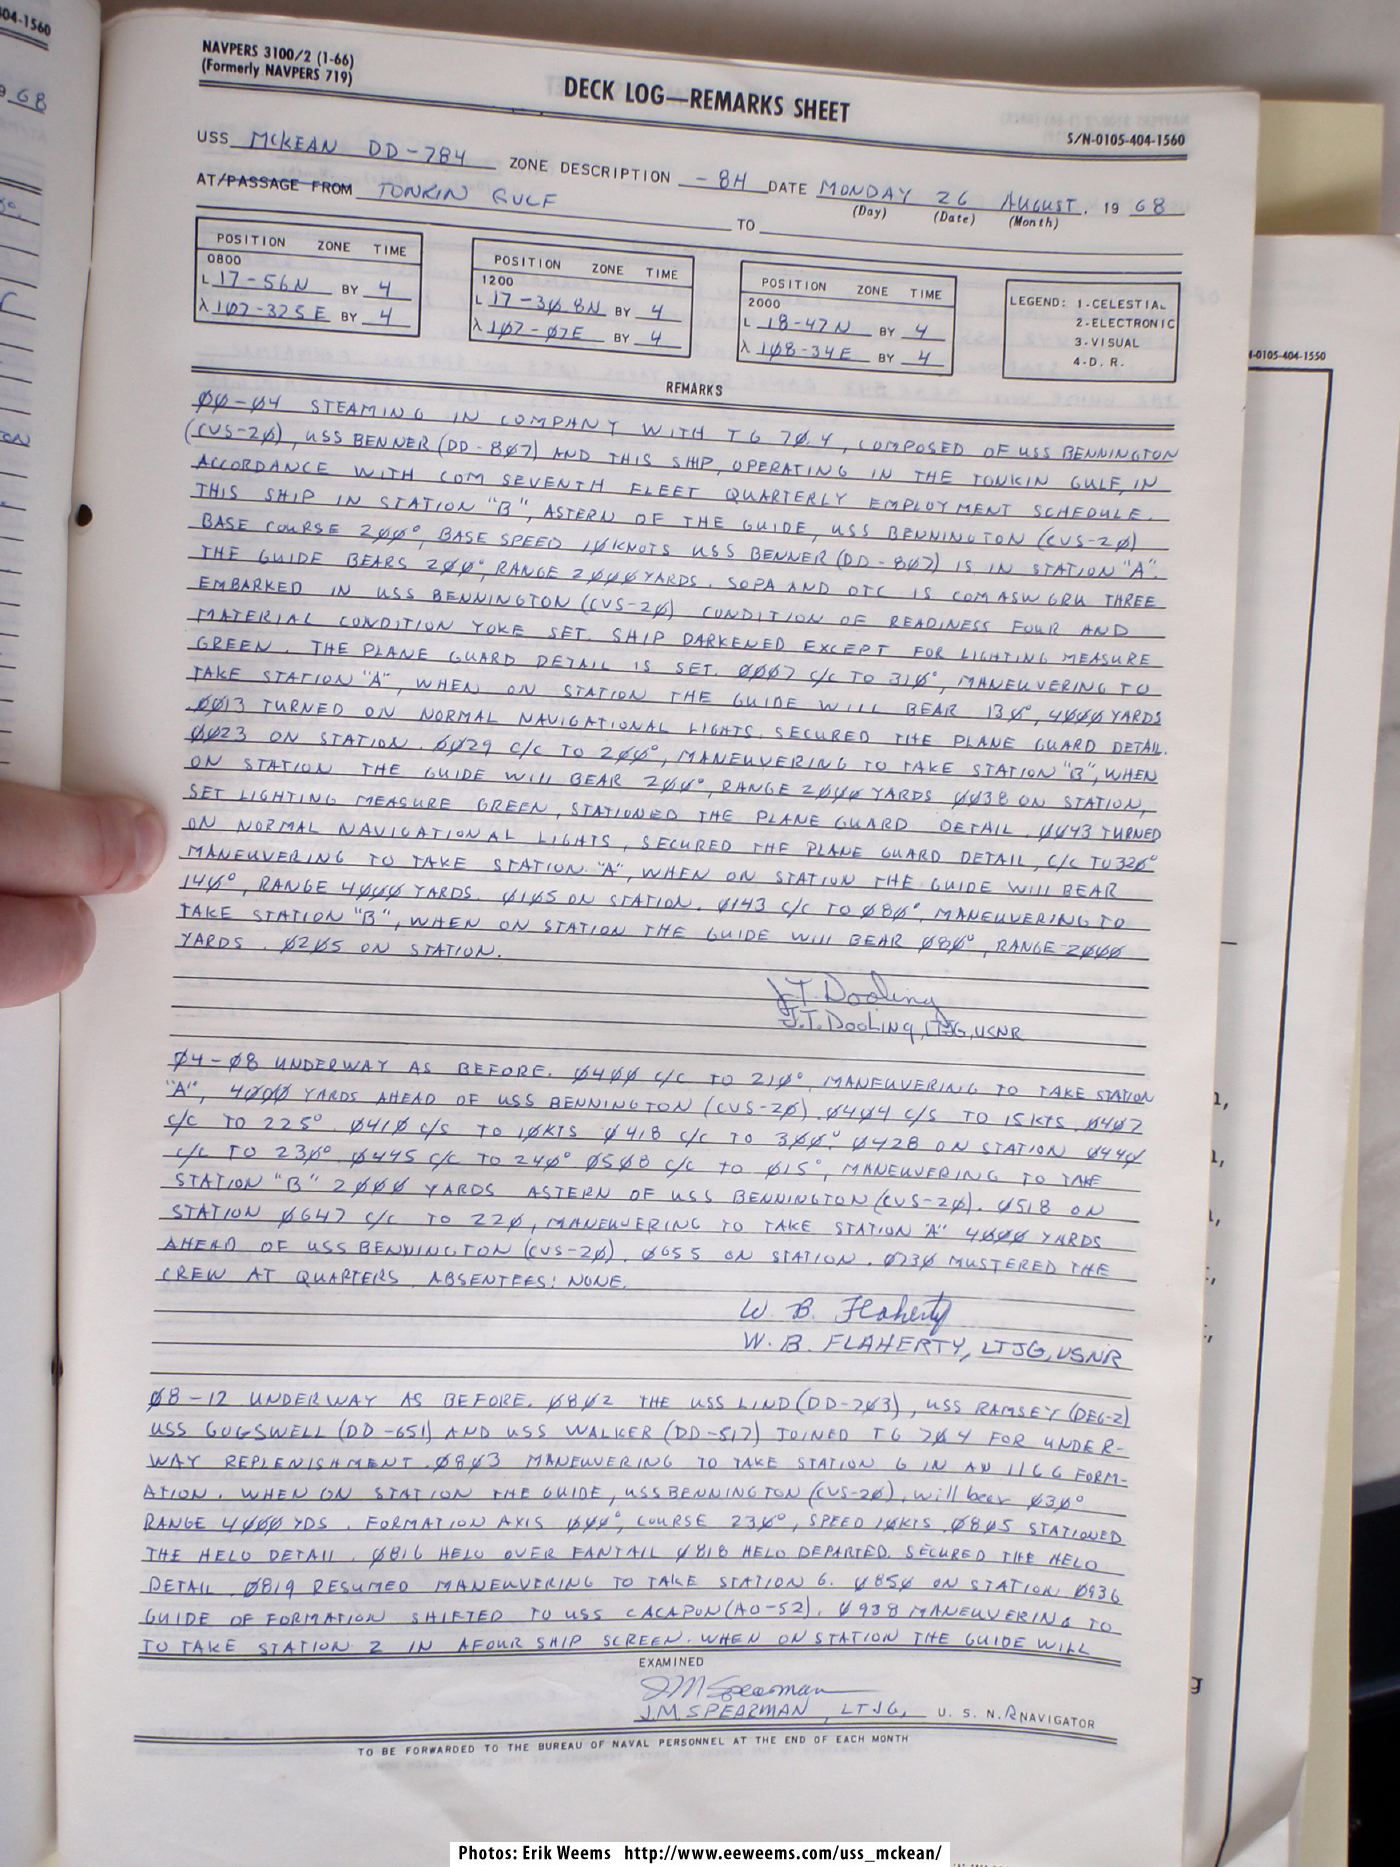 04-1560
9 68
NAVPERS 3100/2 (1-66)
(Formerly NAVPERS 719)
DECK LOG—REMARKS SHEET
S/N-0105-404-1560
USS McKEAN DD-784 ZONE DESCRIPTION -8H DATE MONDAY 26 AUGUST, 19 68
(Day) (Date) (Month)
AT/PASSAGE FROM TONKIN GULF TO
POSITION ZONE TIME
0800
L 17-56N BY 4
λ 107-325E BY 4
POSITION ZONE TIME
1200
L 17-30.8N BY 4
λ 107-07E BY 4
POSITION ZONE TIME
2000
L 18-47N BY 4
λ 108-34E BY 4
LEGEND: 1-CELESTIAL
2-ELECTRONIC
3-VISUAL
4-D. R.
REMARKS
00-04 STEAMING IN COMPANY WITH TG 70.4, COMPOSED OF USS BENNINGTON
(CVS-20), USS BENNER (DD-807) AND THIS SHIP, OPERATING IN THE TONKIN GULF, IN
ACCORDANCE WITH COM SEVENTH FLEET QUARTERLY EMPLOYMENT SCHEDULE.
THIS SHIP IN STATION "B", ASTERN OF THE GUIDE, USS BENNINGTON (CVS-20)
BASE COURSE 200°, BASE SPEED 10 KNOTS USS BENNER (DD-807) IS IN STATION "A".
THE GUIDE BEARS 200°, RANGE 2000 YARDS. SOPA AND OTC IS COMASWGRU THREE
EMBARKED IN USS BENNINGTON (CVS-20) CONDITION OF READINESS FOUR AND
MATERIAL CONDITION YOKE SET. SHIP DARKENED EXCEPT FOR LIGHTING MEASURE
GREEN. THE PLANE GUARD DETAIL IS SET. 0007 C/C TO 310°, MANEUVERING TO
TAKE STATION "A", WHEN ON STATION THE GUIDE WILL BEAR 130°, 4000 YARDS
0013 TURNED ON NORMAL NAVIGATIONAL LIGHTS. SECURED THE PLANE GUARD DETAIL.
0023 ON STATION. 0029 C/C TO 200°, MANEUVERING TO TAKE STATION "B", WHEN
ON STATION THE GUIDE WILL BEAR 200°, RANGE 2000 YARDS 0038 ON STATION,
SET LIGHTING MEASURE GREEN, STATIONED THE PLANE GUARD DETAIL. 0043 TURNED
ON NORMAL NAVIGATIONAL LIGHTS, SECURED THE PLANE GUARD DETAIL, C/C TO 320°
MANEUVERING TO TAKE STATION "A", WHEN ON STATION THE GUIDE WILL BEAR
140°, RANGE 4000 YARDS. 0105 ON STATION. 0143 C/C TO 080°, MANEUVERING TO
TAKE STATION "B", WHEN ON STATION THE GUIDE WILL BEAR 080°, RANGE 2000
YARDS. 0205 ON STATION.
J.T. Dooling
J.T. Dooling, LTJG, USNR
04-08 UNDERWAY AS BEFORE. 0400 C/C TO 210°, MANEUVERING TO TAKE STATION
"A", 4000 YARDS AHEAD OF USS BENNINGTON (CVS-20). 0404 C/S TO 15KTS. 0407
C/C TO 225°. 0410 C/S TO 10KTS 0418 C/C TO 300°. 0428 ON STATION 0440
C/C TO 230°. 0445 C/C TO 240° 0508 C/C TO 015°, MANEUVERING TO TAKE
STATION "B" 2000 YARDS ASTERN OF USS BENNINGTON (CVS-20). 0518 ON
STATION 0647 C/C TO 220, MANEUVERING TO TAKE STATION "A" 4000 YARDS
AHEAD OF USS BENNINGTON (CVS-20). 0655 ON STATION. 0730 MUSTERED THE
CREW AT QUARTERS, ABSENTEES: NONE.
W. B. Flaherty
W. B. FLAHERTY, LTJG, USNR
08-12 UNDERWAY AS BEFORE. 0802 THE USS LIND (DD-703), USS RAMSEY (DEG-2)
USS COGSWELL (DD-651) AND USS WALKER (DD-517) JOINED TG 70.4 FOR UNDER-
WAY REPLENISHMENT. 0803 MANEUVERING TO TAKE STATION 6 IN AN 1166 FORM-
ATION. WHEN ON STATION THE GUIDE, USS BENNINGTON (CVS-20), will bear 030°
RANGE 4000 YDS. FORMATION AXIS 000°, COURSE 230°, SPEED 10KTS. 0805 STATIONED
THE HELO DETAIL. 0816 HELO OVER FANTAIL 0818 HELO DEPARTED. SECURED THE HELO
DETAIL. 0819 RESUMED MANEUVERING TO TAKE STATION 6. 0850 ON STATION. 0936
GUIDE OF FORMATION SHIFTED TO USS CACAPON (AO-52). 0938 MANEUVERING TO
TO TAKE STATION 2 IN A FOUR SHIP SCREEN. WHEN ON STATION THE GUIDE WILL
EXAMINED
J M Spearman
J.M. SPEARMAN, LTJG, U. S. N. R NAVIGATOR
TO BE FORWARDED TO THE BUREAU OF NAVAL PERSONNEL AT THE END OF EACH MONTH
-0105-404-1550
Photos: Erik Weems http://www.eeweems.com/uss_mckean/